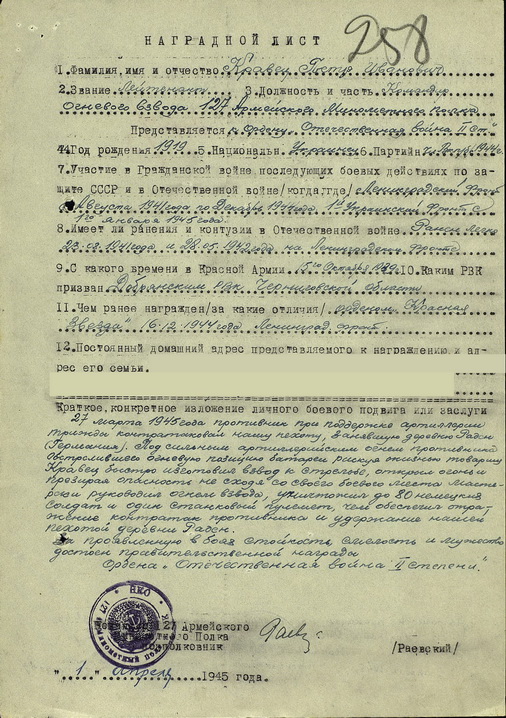 258
НАГРАДНОЙ ЛИСТ
1. Фамилия, имя и отчество Кравец Петр Иванович
2. Звание Лейтенант 3. Должность и часть Командир
Огневого взвода 127 Армейского Минометного полка
Представляется к ордену „Отечественная война II ст."
4. Год рождения 1919 5. Национальн. Украинец 6. Партийн.
7. Участие в Гражданской войне последующих боевых действиях по за-
щите СССР и в Отечественной войне/когда, где/ с Ленинградский фронт
Августа 1941 года по Декабрь 1944 года. 1й Украинский фронт с
1го января 1945 года.
8. Имеет ли ранения и контузии в Отечественной войне. Ранен легко
23.03.1941 года и 28.05.1942 года на Ленинградском фронте
9. С какого времени в Красной Армии 15го Октября 1939 10. Каким РВК
призван Добрянским рвк. Черниговской области
11. Чем ранее награжден/за какие отличия/ орденом „Красная
Звезда" 16.12.1944 года. Ленинград. фронт.
12. Постоянный домашний адрес представляемого к награждению и ад-
рес его семьи.
Краткое, конкретное изложение личного боевого подвига или заслуги
27 марта 1945 года противник при поддержке артиллерии
трижды контратаковал нашу пехоту, занявшую деревню Раден
/Германия/. Под сильным артиллерийским огнем противника
обстрелившего огневую позицию батареи рискуя жизнью товарищ
Кравец быстро изготовил взвод к стрельбе, открыл огонь и
презирая опасность не сходя со своего боевого места мастер-
ски руководил огнем взвода, уничтожил до 80 немецких
солдат и один станковый пулемет, чем обеспечил отра-
жение контратак противника и удержание нашей
пехотой деревни Раден.
За проявленную в боях стойкость, смелость и мужество
достоен правительственной награды
Ордена „Отечественная война II степени."
НКО
127
127 Армейского
Полка
Подполковник
/Раевский/
"1" Апреля 1945 года.